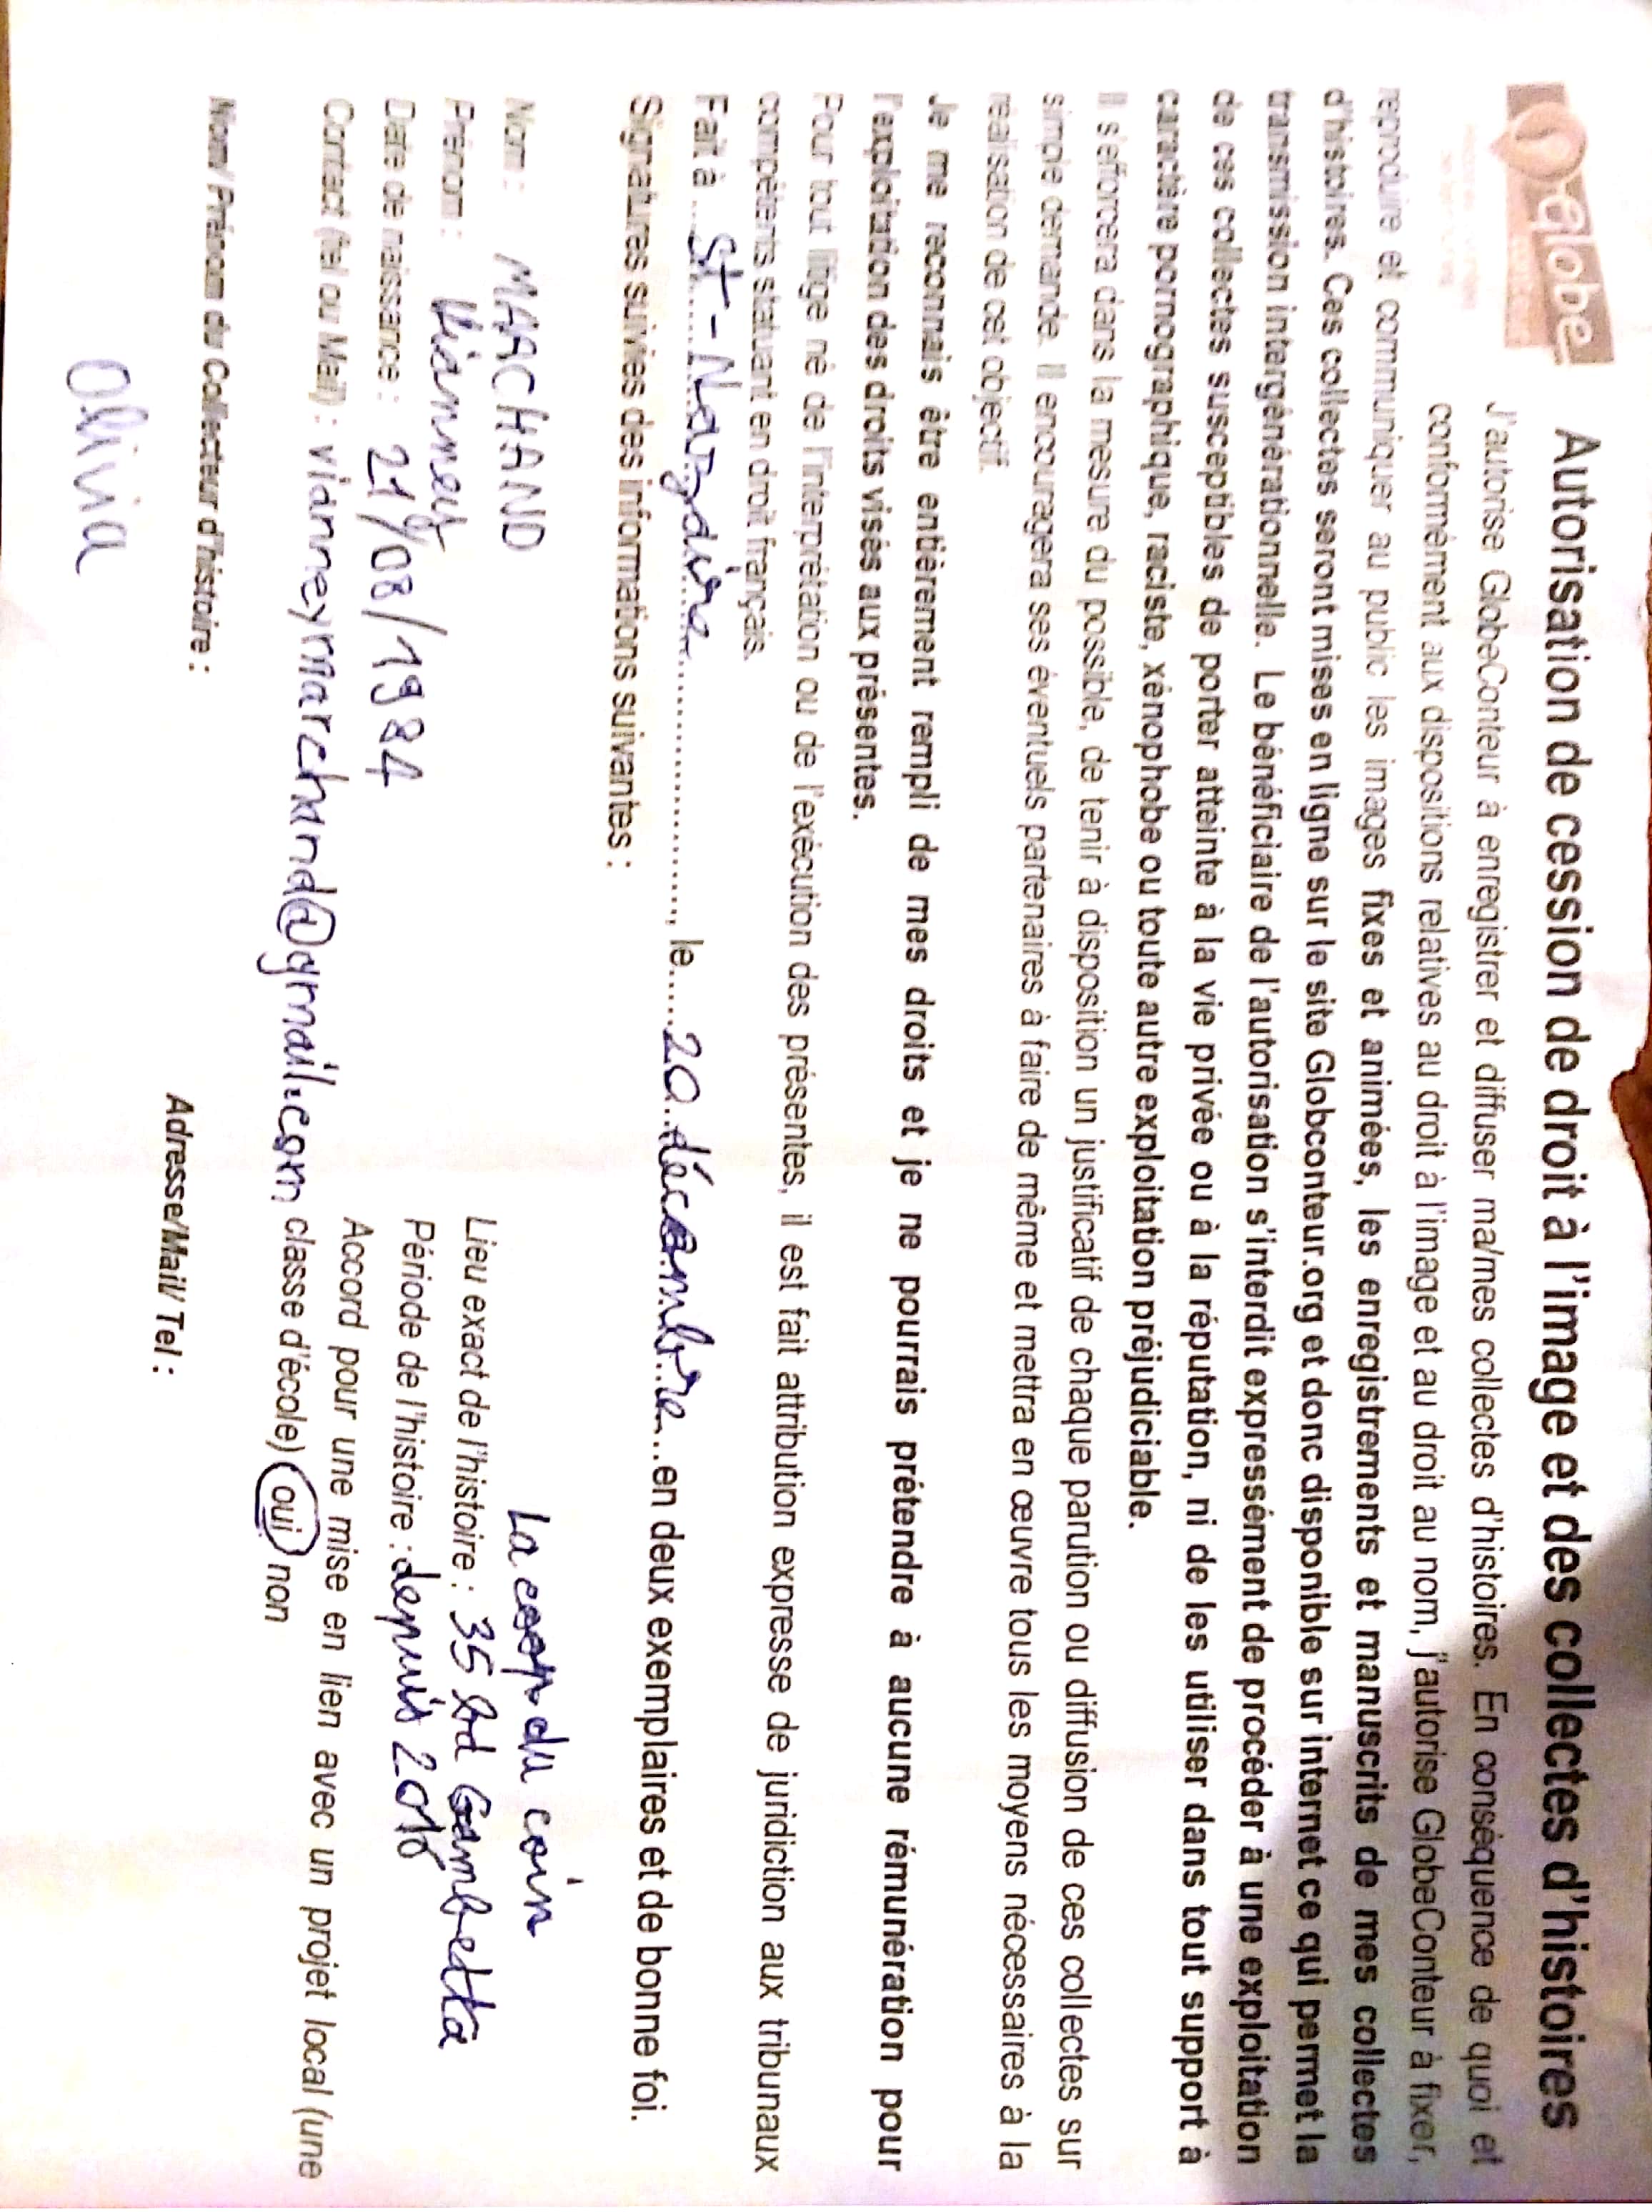 Globe
conteur
Autorisation de cession de droit à l'image et des collectes d'histoires
J'autorise GlobeConteur à enregistrer et diffuser ma/mes collectes d'histoires. En conséquence de quoi et
conformément aux dispositions relatives au droit à l'image et au droit au nom, j'autorise GlobeConteur à fixer,
reproduire et communiquer au public les images fixes et animées, les enregistrements et manuscrits de mes collectes
d'histoires. Ces collectes seront mises en ligne sur le site Globconteur.org et donc disponible sur internet ce qui permet la
transmission intergénérationnelle. Le bénéficiaire de l'autorisation s'interdit expressément de procéder à une exploitation
de ces collectes susceptibles de porter atteinte à la vie privée ou à la réputation, ni de les utiliser dans tout support à
caractère pornographique, raciste, xénophobe ou toute autre exploitation préjudiciable.
Il s'efforcera dans la mesure du possible, de tenir à disposition un justificatif de chaque parution ou diffusion de ces collectes sur
simple demande. Il encouragera ses éventuels partenaires à faire de même et mettra en œuvre tous les moyens nécessaires à la
réalisation de cet objectif.
Je me reconnais être entièrement rempli de mes droits et je ne pourrais prétendre à aucune rémunération pour
l'exploitation des droits visés aux présentes.
Pour tout litige né de l'interprétation ou de l'exécution des présentes, il est fait attribution expresse de juridiction aux tribunaux
compétents statuant en droit français.
Fait à St-Nazaire, le 20 décembre en deux exemplaires et de bonne foi.
Signatures suivies des informations suivantes :
La du coin
Nom : MARCHAND
Lieu exact de l'histoire : 35 Bd Gambetta
Prénom : Vianney
Période de l'histoire : depuis 2016
Date de naissance : 21/08/1984
Accord pour une mise en lien avec un projet local (une
Contact (tel ou Mail) : vianneymarchand@gmail.com classe d'école) oui non
Nom/ Prénom du Collecteur d'histoire :
Adresse/Mail/ Tel :
Olivia